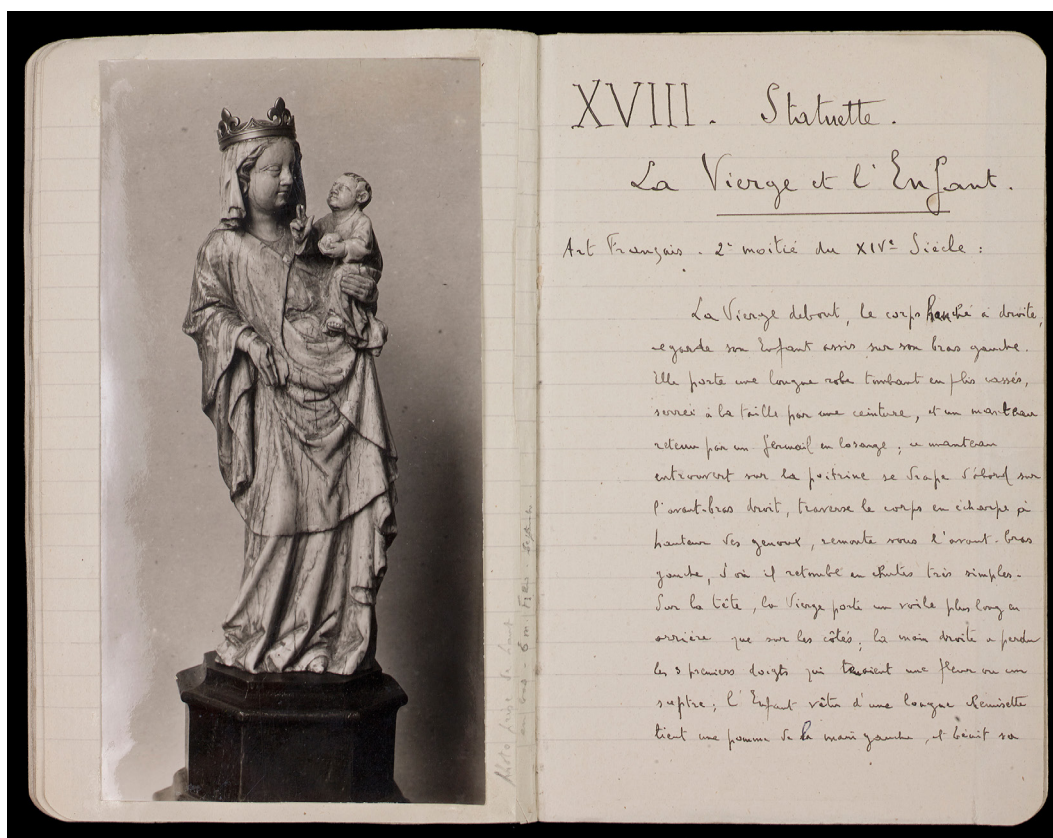 Photo prise de haut
XVIII. Statuette.
La Vierge et l'Enfant.
Art Français. 2e moitié du XIVe Siècle :
La Vierge debout, le corps hanché à droite,
regarde son Enfant assis sur son bras gauche.
Elle porte une longue robe tombant en plis cassés,
serrée à la taille par une ceinture, et un manteau
retenu par un fermail en losange ; ce manteau
entrouvert sur la poitrine se drape d'abord sur
l'avant-bras droit, traverse le corps en écharpe à
hauteur des genoux, remonte sous l'avant-bras
gauche, d'où il retombe en chutes très simples.
Sur la tête, la Vierge porte un voile plus long en
arrière que sur les côtés ; la main droite a perdu
les 3 premiers doigts qui tenaient une fleur ou un
sceptre ; l'Enfant vêtu d'une longue chemisette
tient une pomme de la main gauche, et bénit sa